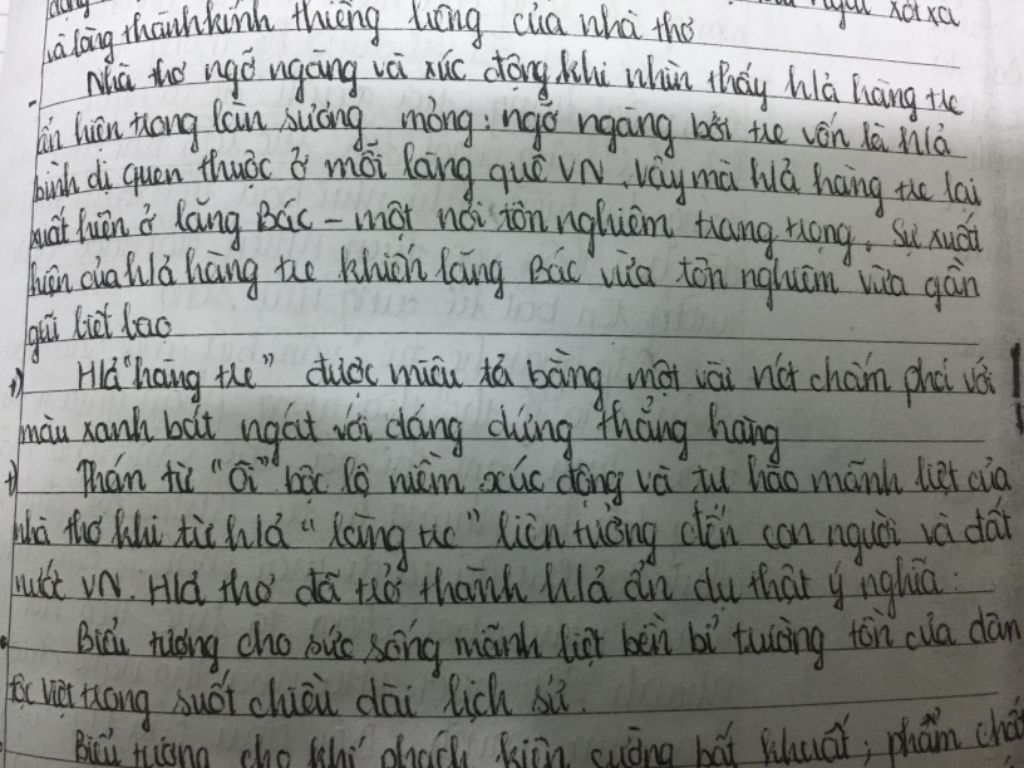 ngát xót xa
và lòng thành kính thiêng liêng của nhà thơ
- Nhà thơ ngỡ ngàng và xúc động khi nhìn thấy h/ả hàng tre
ẩn hiện trong làn sương mỏng: ngỡ ngàng bởi tre vốn là h/ả
bình dị quen thuộc ở mỗi làng quê VN. Vậy mà h/ả hàng tre lại
xuất hiện ở lăng Bác - một nơi tôn nghiêm trang trọng. Sự xuất
hiện của h/ả hàng tre khiến lăng Bác vừa tôn nghiêm vừa gần
gũi biết bao
+) H/ả "hàng tre" được miêu tả bằng một vài nét chấm phá với
màu xanh bát ngát với dáng đứng thẳng hàng
+) Thán từ "Ôi" bộc lộ niềm xúc động và tự hào mãnh liệt của
nhà thơ khi từ h/ả "hàng tre" liên tưởng đến con người và đất
nước VN. H/ả thơ đã trở thành h/ả ẩn dụ thật ý nghĩa:
Biểu tượng cho sức sống mãnh liệt bền bỉ trường tồn của dân
tộc Việt trong suốt chiều dài lịch sử.
Biểu tượng cho khí phách kiên cường bất khuất, phẩm chất